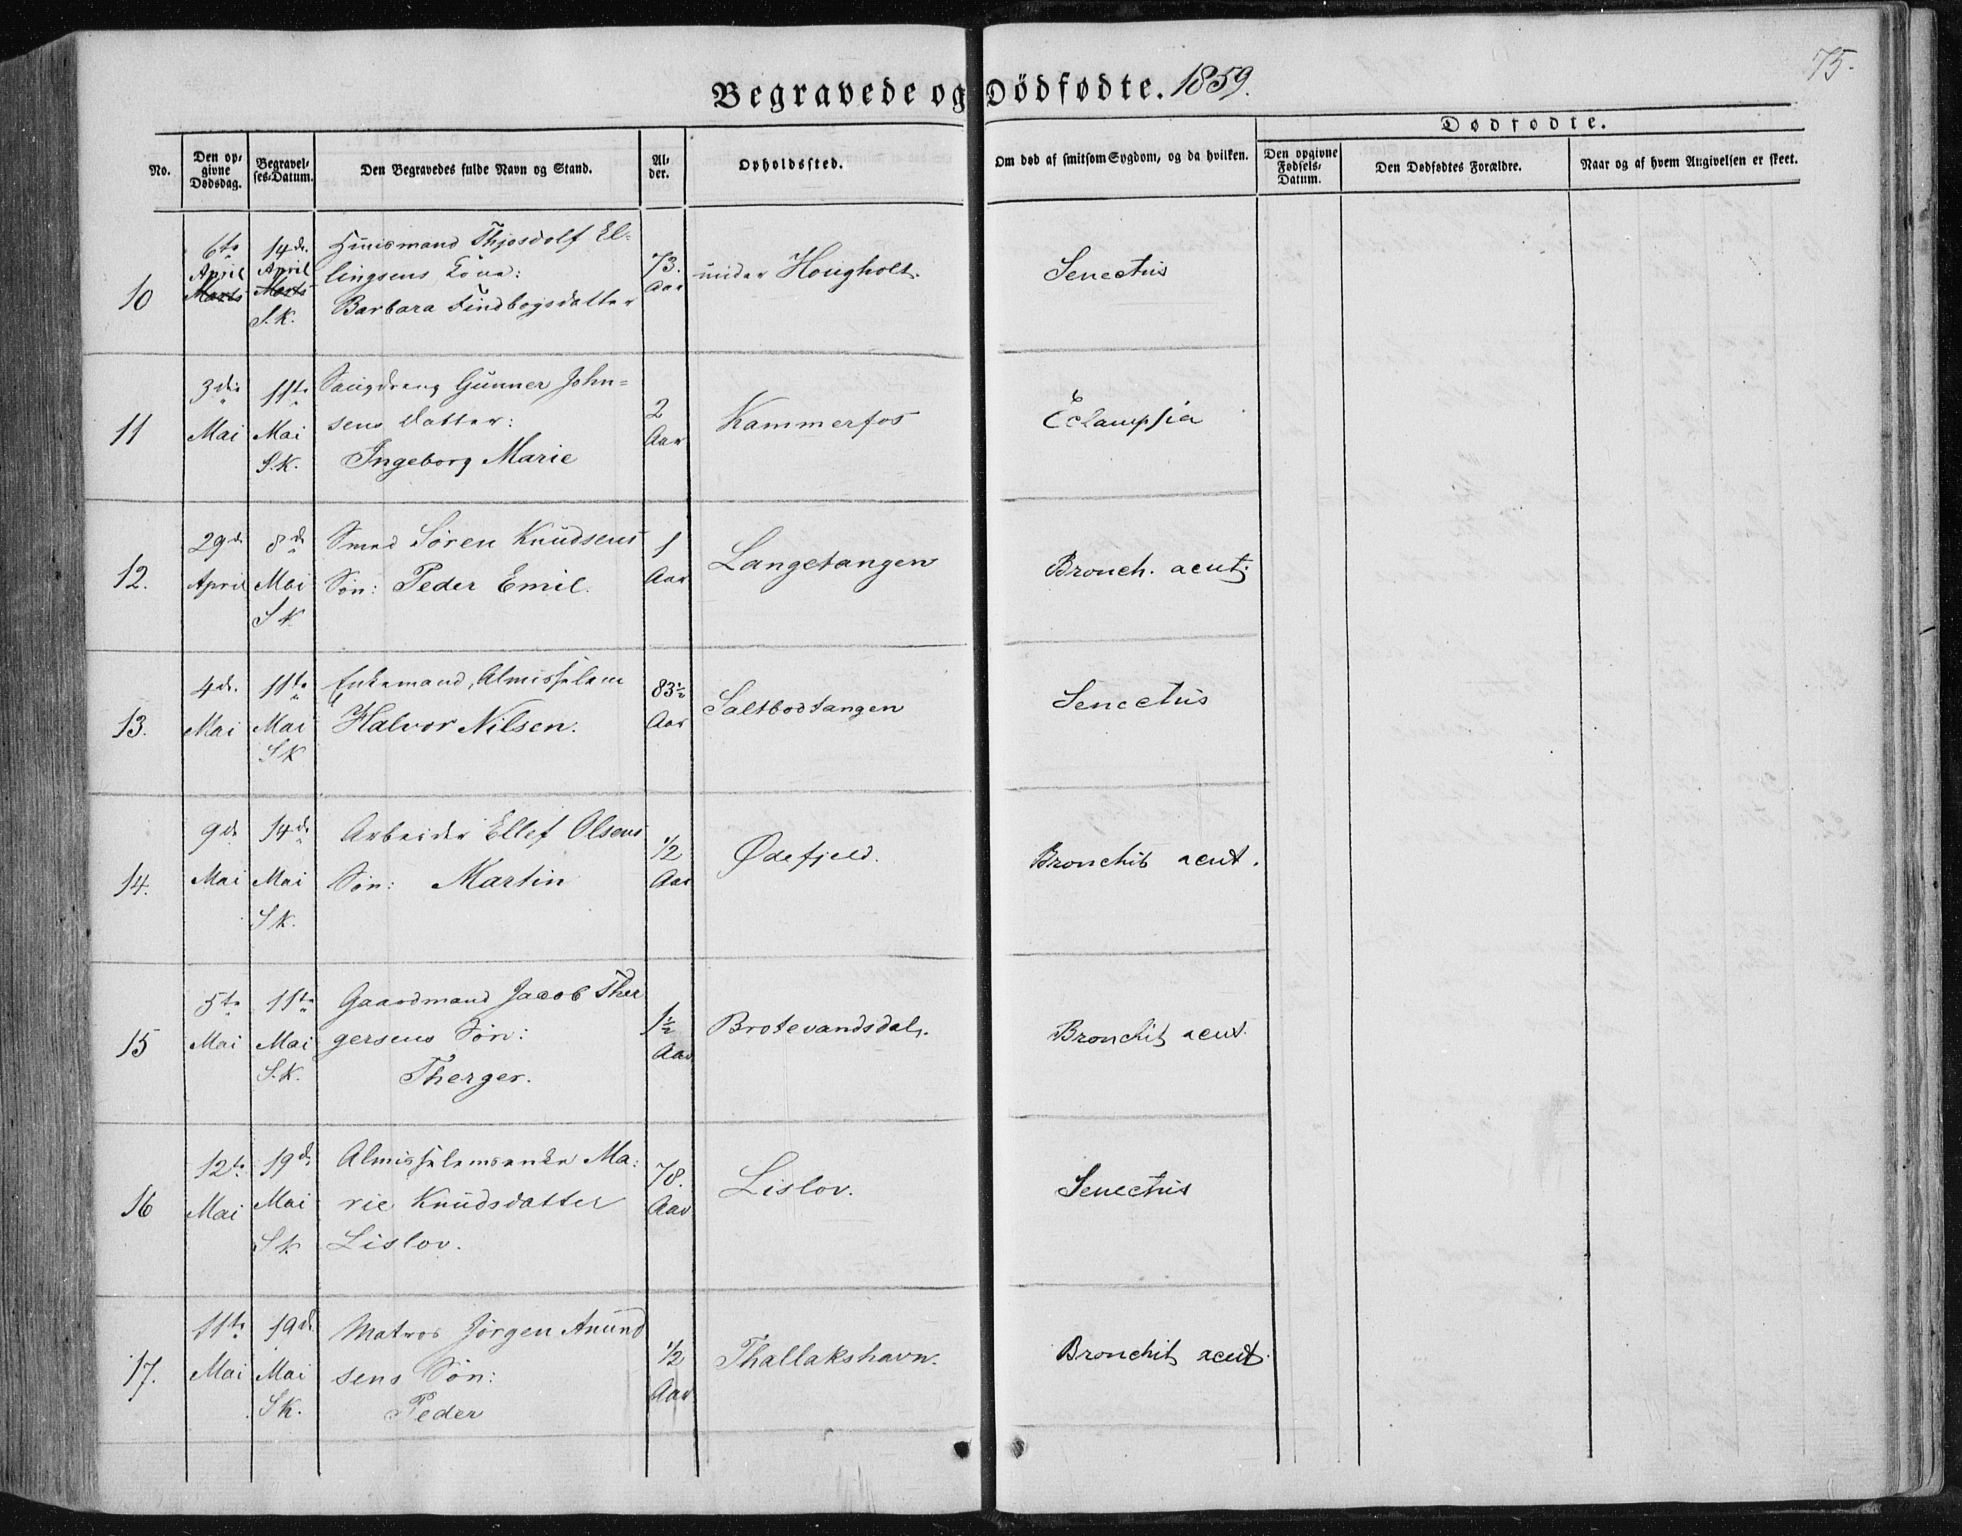 75.
Begravede og Dödfødte. 1859.
Dødfødte.
No.
Den op-
givne
Dødsdag.
Begravel-
ses-Datum.
Den Begravedes fulde Navn og Stand.
Al-
der.
Opholdssted.
Om død af smitsom Sygdom, og da hvilken.
Den opgivne
Fødsels-
Datum.
Den Dødfødtes Forældre.
Naar og af hvem Angivelsen er skeet.
10
6te
April
Marts
14de
April
Marts
S.K.
Huusmand Thjosdolf El-
lingsens Kone:
Barbara Findbogsdatter
73.
Aar
under Hougholt.
Senectus
11
3die
Mai
11te
Mai
S.K.
Saugdreng Gunner John-
sens Datter:
Ingeborg Marie
2
Aar
Kammerfos
Eclampsia
12.
29de
April
8de
Mai
S K
Smed Søren Knudsens
Søn: Peder Emil.
1
Aar
Langetangen
Bronch. acut.
13.
4de
Mai
11te
Mai
S K
Enkemand, Almisselem
Halvor Nilsen.
83½
Aar
Saltbodtangen
Senectus
14.
9de
Mai
14de
Mai
S K.
Arbeider Ellef Olsens
Søn: Martin
1/2
Aar
Ødefjeld.
Bronchit acut.
15
5te
Mai
11te
Mai
S.K.
Gaardmand Jacob Ther
gersens Søn:
Therger.
1½
Aar
Brotevandsdal.
Bronchit acut.
16
12te
Mai
19de
Mai
S K
Almisselemsenke Ma-
rie Knudsdatter
Lislov.
78.
Aar
Lislov.
Senectus
17.
11te
Mai
19de
Mai
S K.
Matros Jørgen Anund
sens Søn:
Peder
1/2
Aar
Thallakshavn.
Bronchit acut.